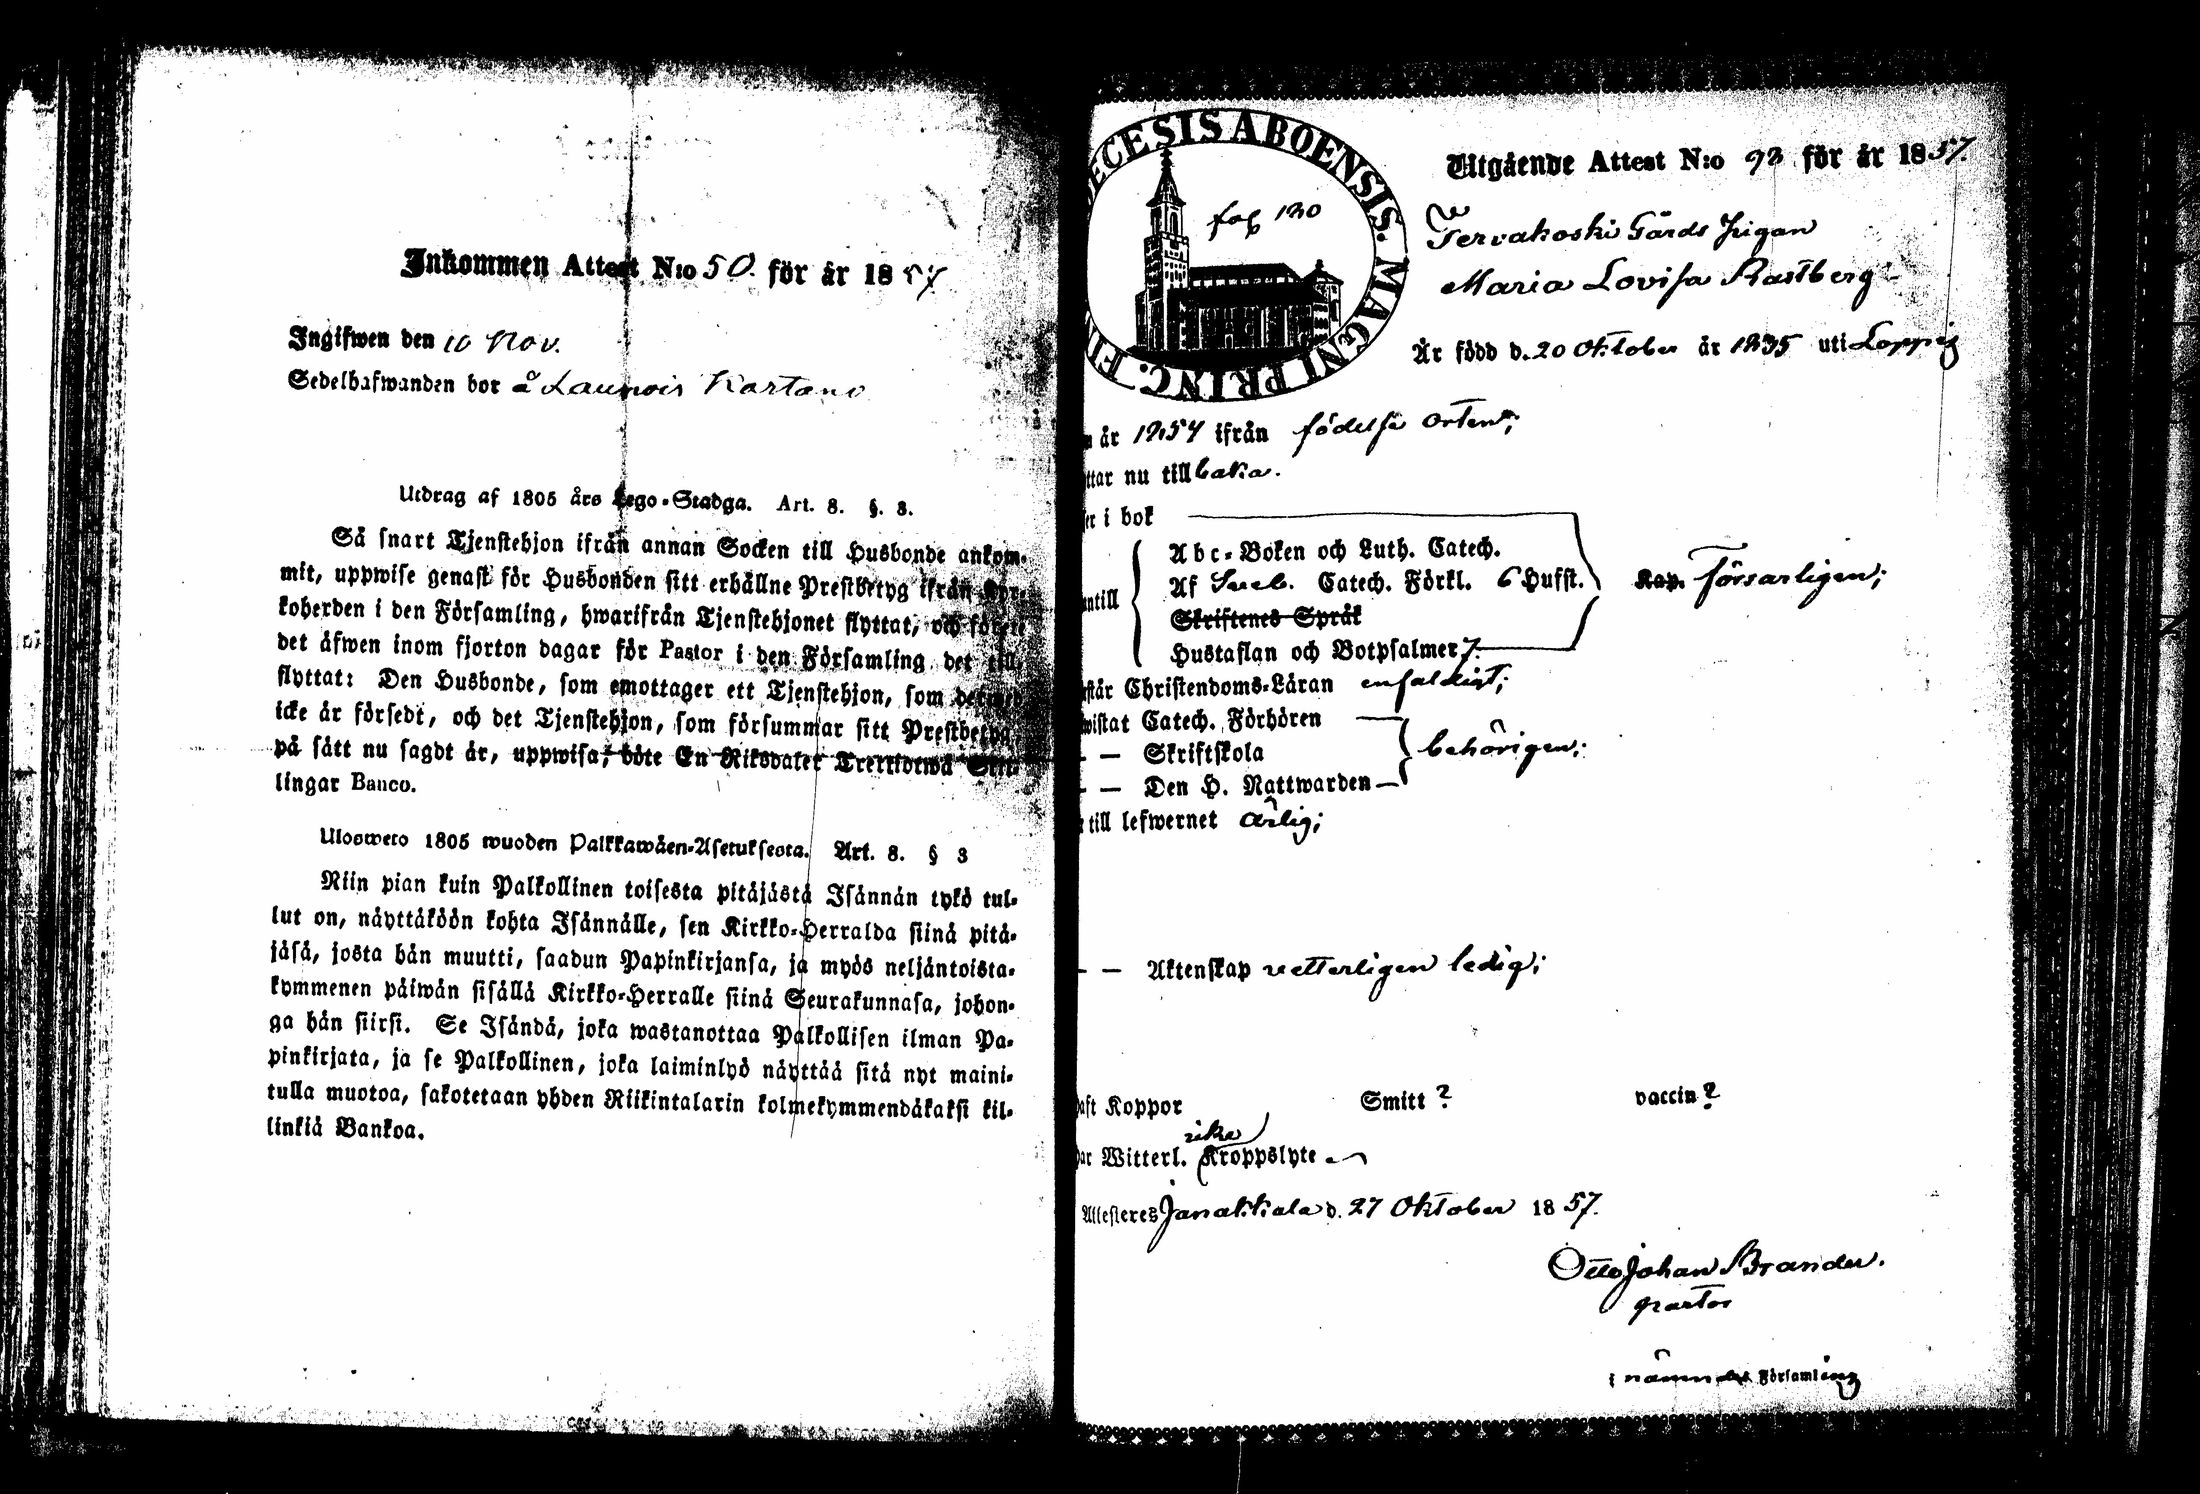 Inkommen Attest N:o 50. för år 1857
Ingifwen den 10 Nov.
Sedelhafwanden bor å Launois Kartano
Utdrag af 1805 års Lego-Stadga. Art. 8. §. 3.
Så snart Tjenstehjon ifrån annan Socken till Husbonde ankom-
mit, uppwise genast för Husbonden sitt erhållne Prestbetyg ifrån Kyr-
koherden i den Församling, hwarifrån Tjenstehjonet flyttat, och förete
det äfwen inom fjorton dagar för Pastor i den Församling det till-
flyttat: Den Husbonde, som emottager ett Tjenstehjon, som dermed
icke är försedt, och det Tjenstehjon, som försummar sitt Prestbetyg,
på sätt nu sagdt är, uppwisa, böte En Riksdaler Trettiotwå Skil-
lingar Banco.
Ulosweto 1805 wuoden Palkkawäen-Asetuksesta. Art. 8. § 3
Niin pian kuin Palkollinen toisesta pitäjästä Isännän tykö tul-
lut on, näyttäköön kohta Isännälle, sen Kirkko-Herralda siinä pitä-
jäsä, josta hän muutti, saadun Papinkirjansa, ja myös neljäntoista-
kymmenen päiwän sisällä Kirkko-Herralle siinä Seurakunnasa, johon-
ga hän siirsi. Se Isändä, joka wastanottaa Palkollisen ilman Pa-
pinkirjata, ja se Palkollinen, joka laiminlyö näyttää sitä nyt maini-
tulla muotoa, sakotetaan yhden Riikintalarin kolmekymmendäkaksi kil-
linkiä Bankoa.
ECESIS ABOENSIS. MAGNI PRINC. FIN
fol 120
Utgående Attest N:o 93 för år 1857.
Tervakoski Gårds Pigan
Maria Lovisa Rastberg
Är född d. 20 Oktober år 1835 uti Loppis
år 1854 ifrån födelse orten;
ttar nu tillbaka.
er i bok
antill
Abc-Boken och Luth. Catech.
Af Sveb. Catech. Förkl. 6 Hufst. Kap. Försvarligen;
Skriftenes Språk
Hustaflan och Botpsalmer 7.
står Christendoms-Läran enfaldigt;
wistat Catech. Förhören
— — Skriftskola behörigen;
— — Den H. Nattwarden
till lefwernet ärlig;
— — Aktenskap vetterligen ledig;
haft Koppor Smitt? vaccin?
har Witterl. icke Kroppslyte
Attesteres Janakkala d. 27 Oktober 1857.
Otto Johan Brander.
pastor
i nämnde Församling